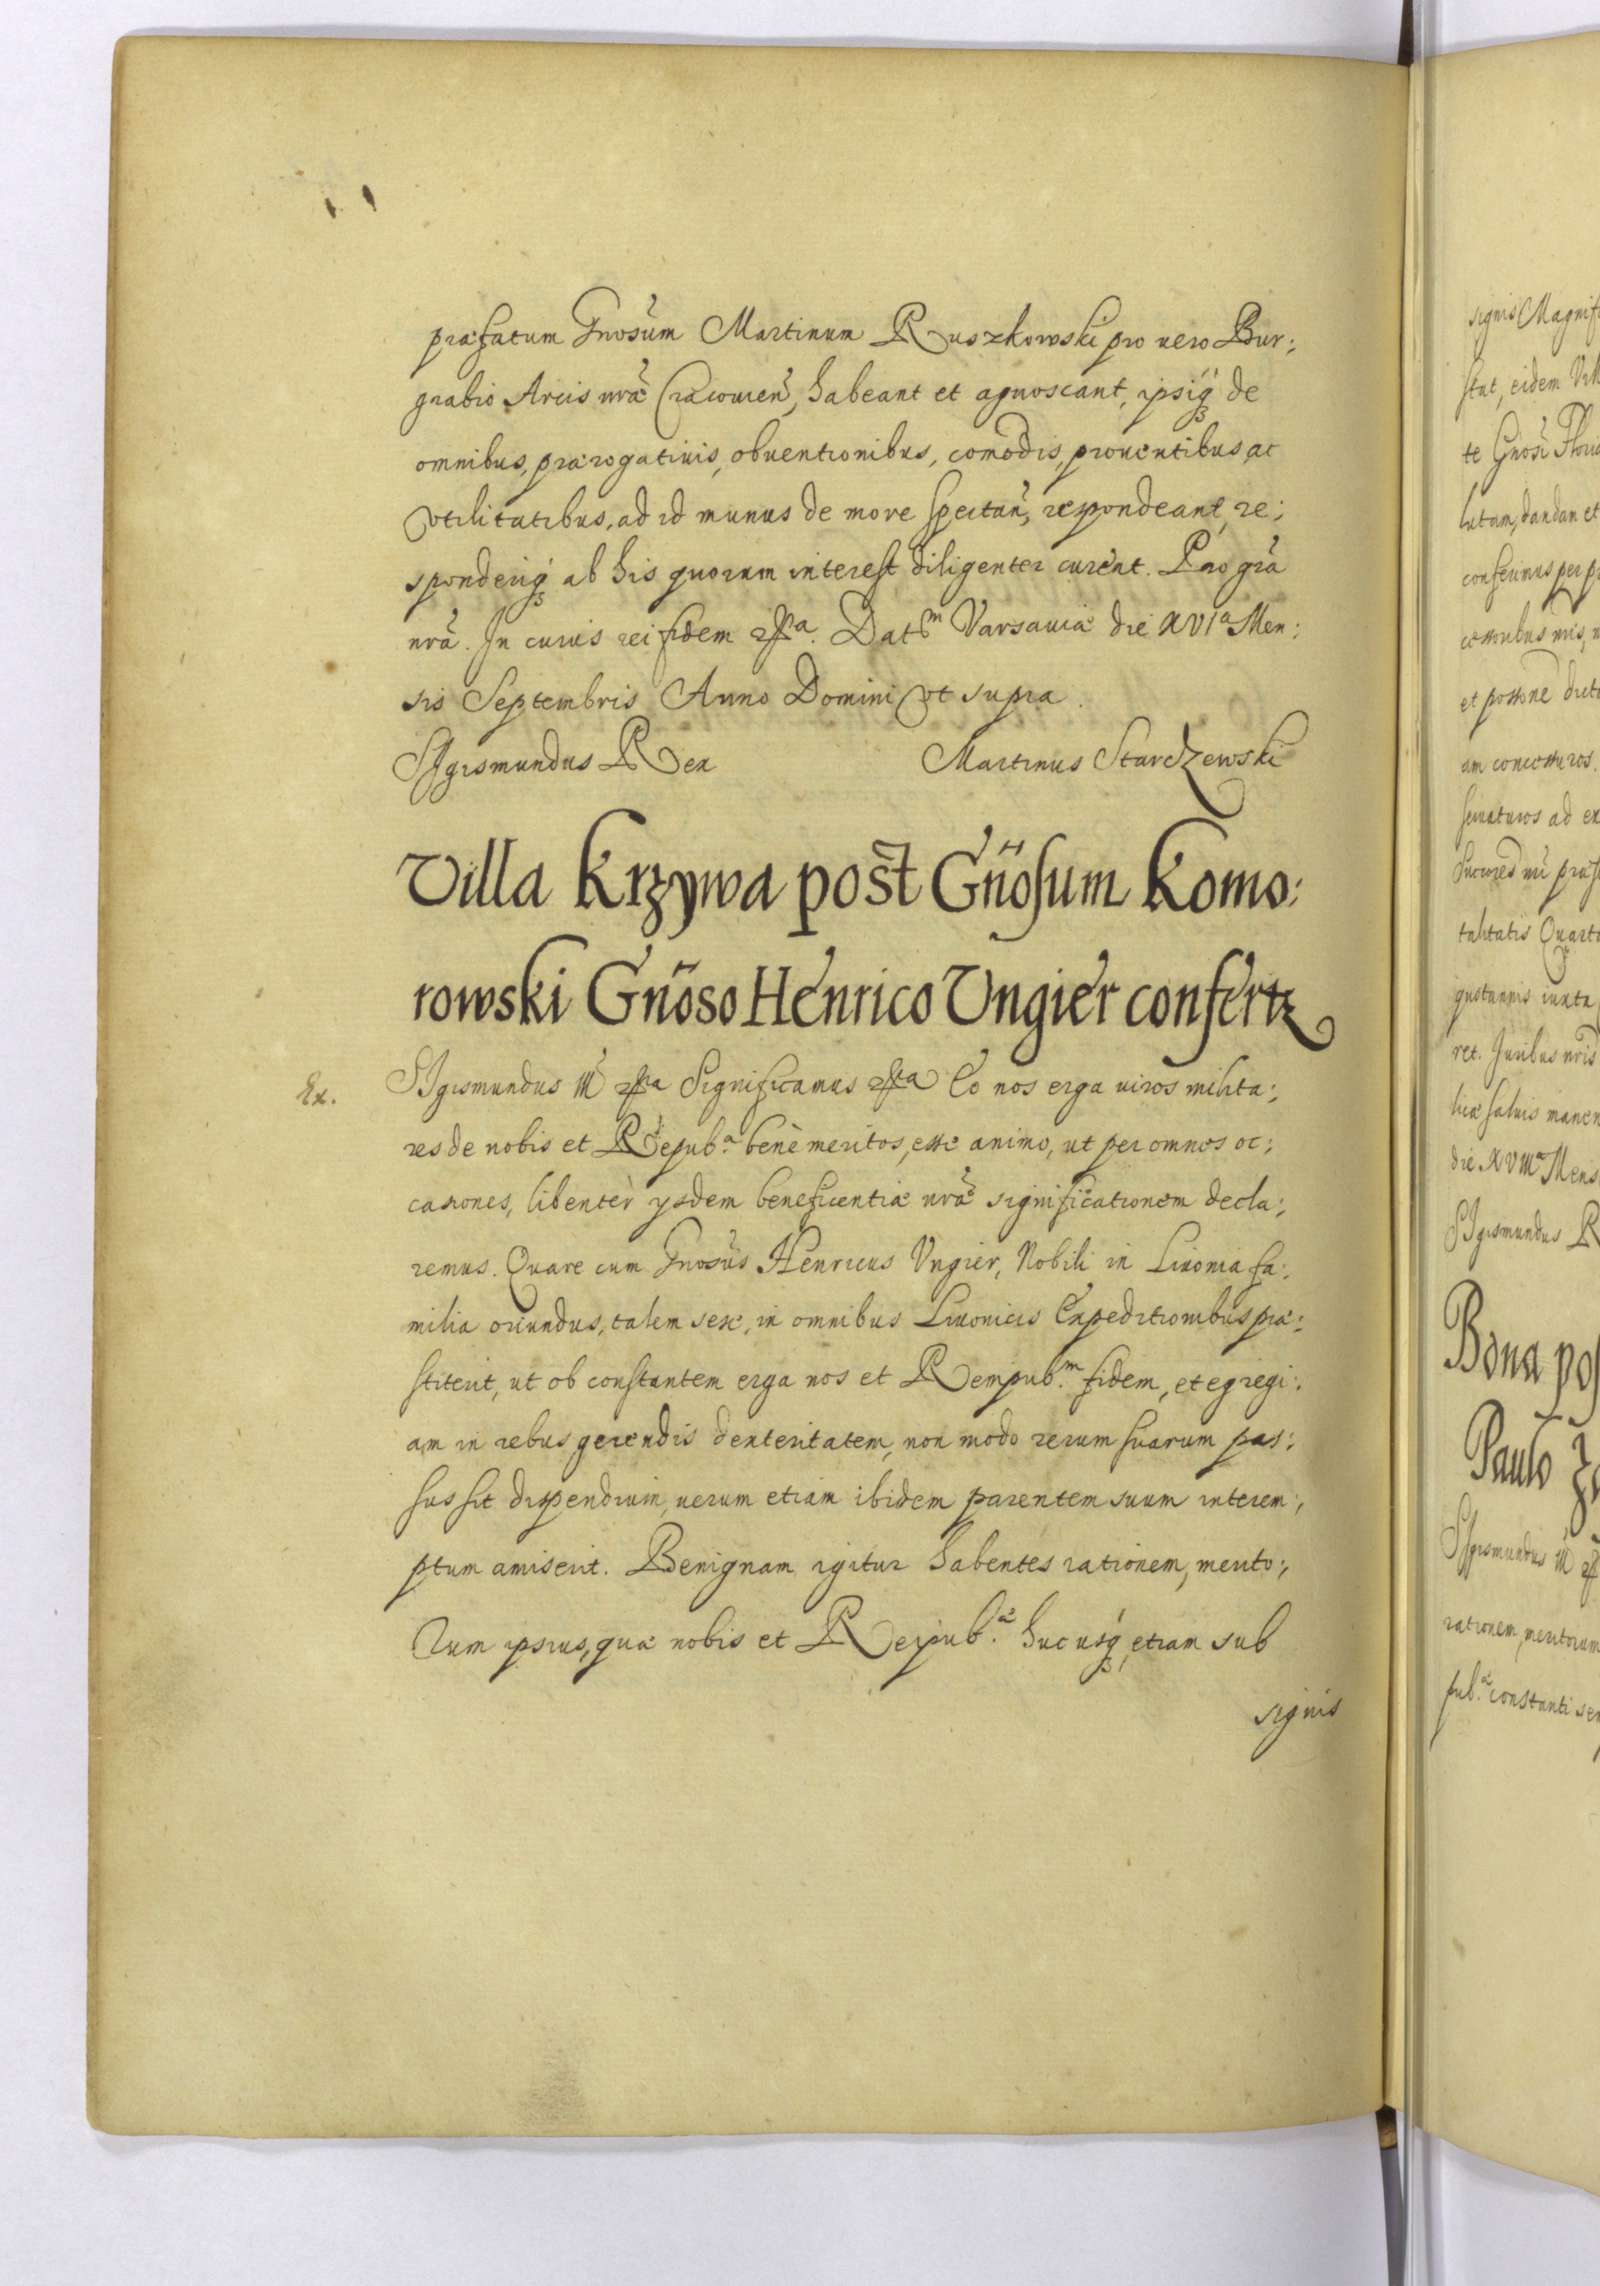 præfatum Gnosum Martinum Ruszkowski pro uero Bur:
grabio Arcis nræ Cracouien, habeant et agnoscant, ipsiq de
omnibus, prærogatiuis, obuentionibus, comodis, prouentibus, ac
vtilitatibus, ad id munus de more spectan, respondeant, re:
sponderiq ab his quorum interest diligenter curent. Pro gra
nra. In cuius rei fidem Datm Varsauiæ die XVIa Men:
sis Septembris Anno Domini vt supra.
SIgismundus Rex Martinus Stardzewski
Villa Krzywa post Gnosum Komo:
rowski Gnoso Henrico Ungier confertz
Ex. SIgismundus III Significamus Eo nos erga uiros milita:
res de nobis et Repuba benè meritos, esse animo, ut per omnes oc:
casiones, libentèr ysdem beneficentiæ nræ significationem decla:
remus. Quare cum Gnosus Henricus Vngier, Nobili in Liuonia fa:
milia oriundus, talem sese, in omnibus Liuonicis Expeditionibus præ:
stiterit, ut ob constantem erga nos et Rempubm. fidem, et egregi:
am in rebus gerendis dexteritatem, non modo rerum suarum pas:
sus sit dispendium, uerum etiam ibidem parentem suum interem:
ptum amiserit. Benignam igitur habentes rationem, merito:
rum ipsius, quæ nobis et Reipub.æ hucusq, etiam sub
signis
signis Magnifi
stat, eidem Vill
te Gnosi Flori
lutam, dandam et
conferimus per pr
cessoribus nris, n
et possone dict
am concessuros.
seruaturos ad ex
talitatis Quart
quotannis iuxta
ret. Iuribus nris
licæ saluis manen
die XVIIIa Mens
SIgismundus R
Bona pos
Paulo
SIgismundus III
rationem, meritorum
pub.æ constanti ser